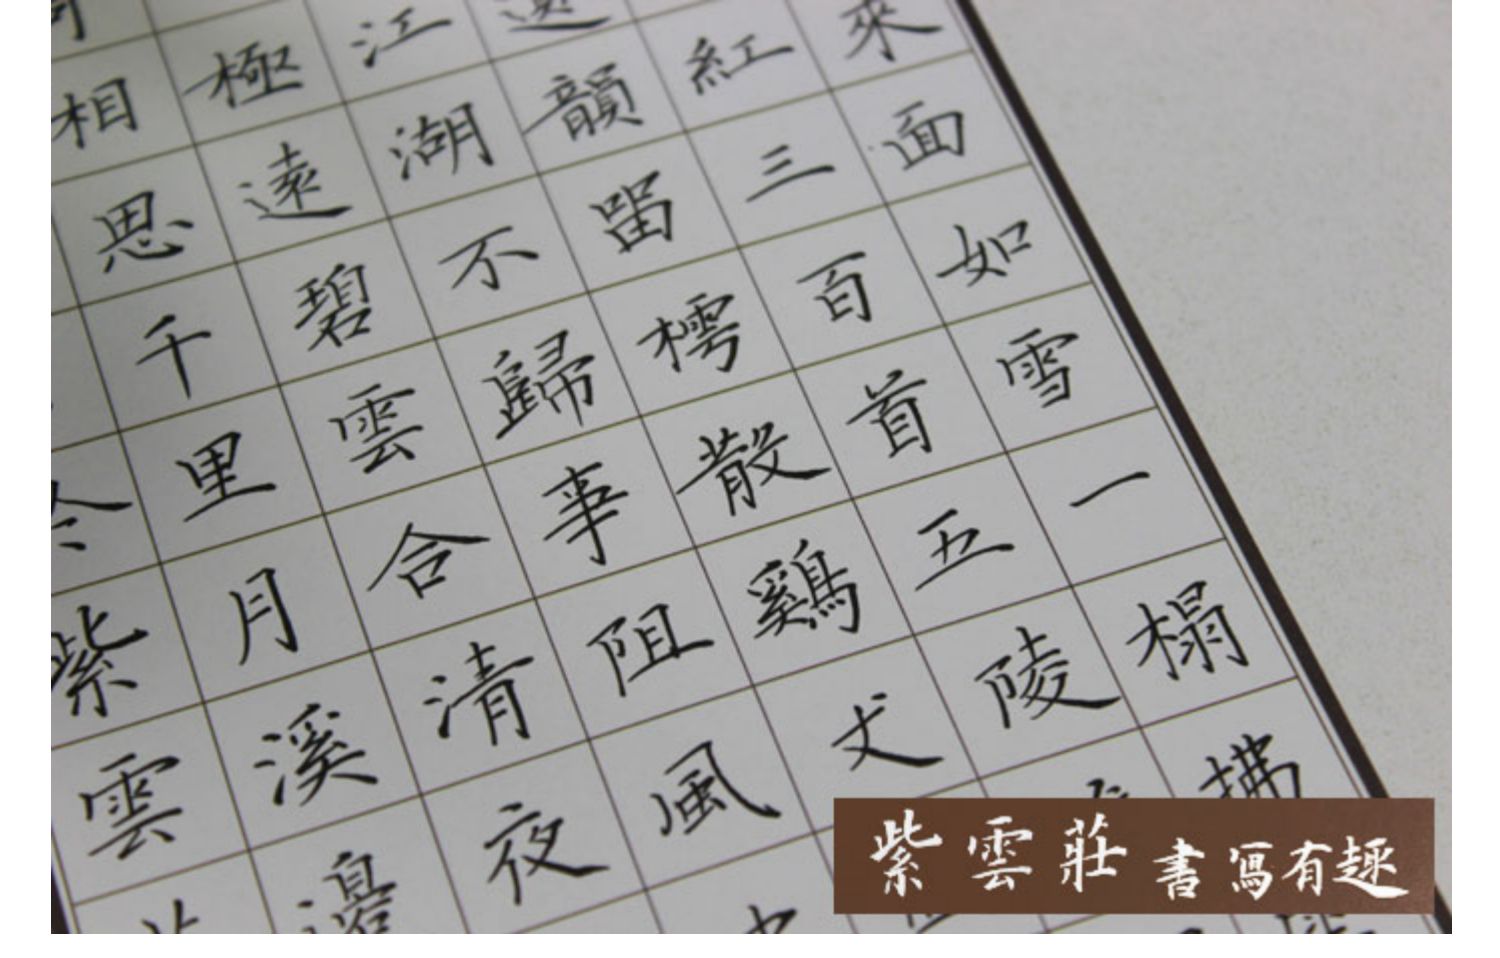 來面如雪一榻拂
紅三百首五陵
韻留樗散鷄丈
江湖不歸事阻風
極遠碧雲合清夜
相思千里月溪邊
紫雲
紫雲莊書寫有趣